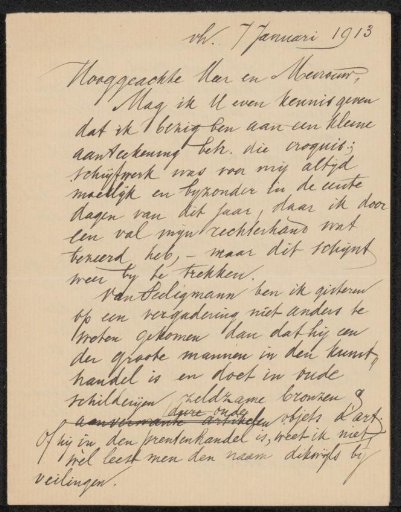 7 Januari 1913
Hooggeachte Heer en Mevrouw,
Mag ik U even kennisgeven
dat ik bezig ben aan een kleine
aanteekening betr. die croquis;
schrijfwerk was voor mij altyd
moeilyk en byzonder in de eerste
dagen van dit jaar, daar ik door
een val myn rechterhand wat
bezeerd heb, – maar dit schynt
weer by te trekken.
Van Seligmann ben ik gisteren
op een vergadering niet anders te
weten gekomen dan dat hy een
der groote mannen in den kunst-
handel is en doet in oude
schilderijen, zeldzame bronzen &
dure oude
aanverwante artikelen objets d'art
of hy in den prentenhandel is, weet ik niet,
wel leest men den naam dikwyls bij
veilingen.